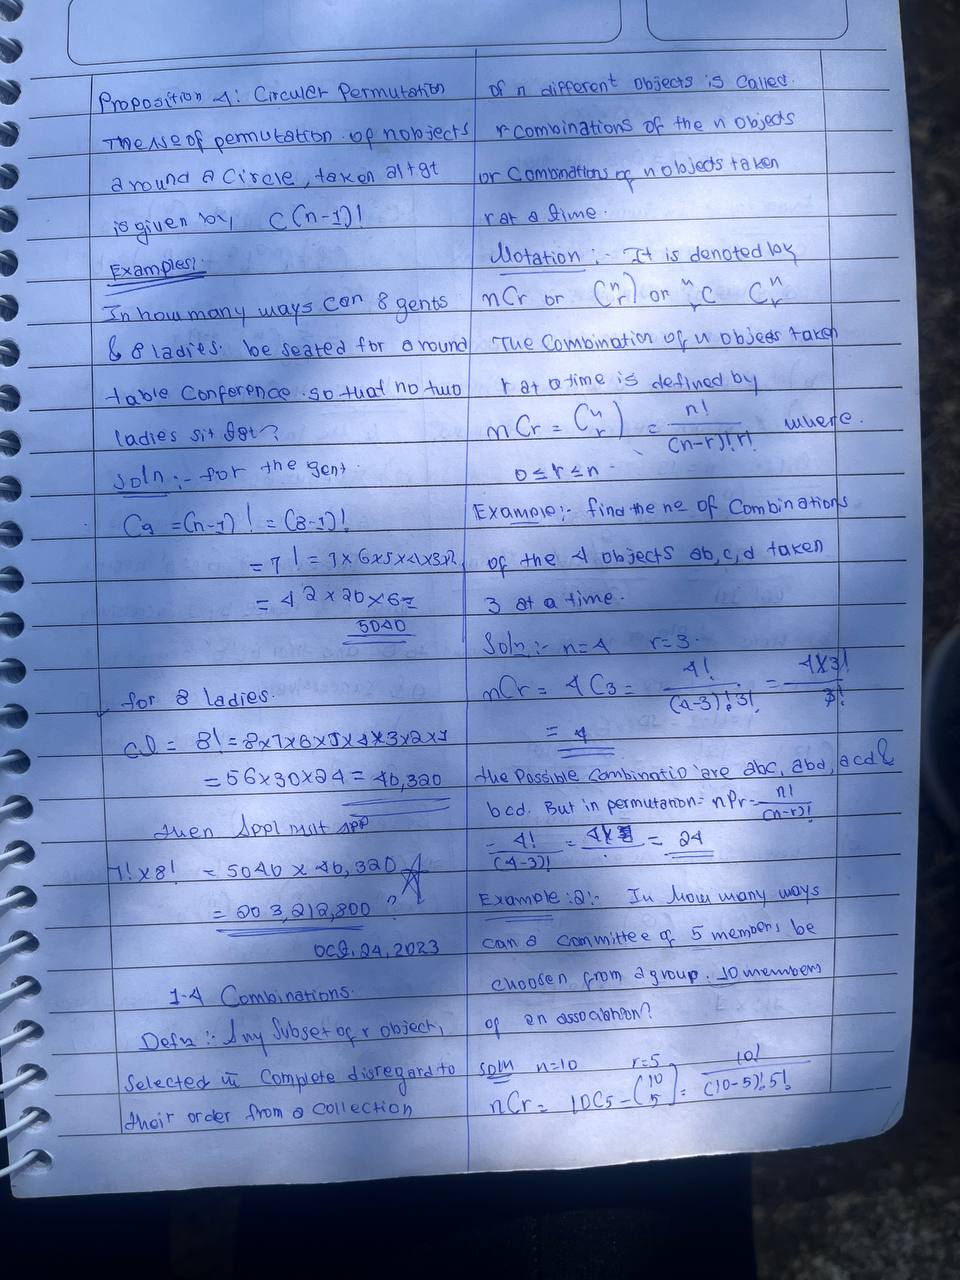 Proposition 4: Circuler Permutation
The no of permutation of n objects
around a Circle, taken altgt
is given by C(n-1)!
Examples:
In how many ways can 8 gents
& 8 ladies be seated for a round
table Conference so that no two
ladies sit tgt?
Soln :- for the gent.
Cg = (n-1)! = (8-1)!
= 7! = 7x6x5x4x3x2
= 42x20x6=
5040
for 8 ladies.
Cl = 8! = 8x7x6x5x4x3x2x1
= 56x30x24 = 40,320
then Appl mult
7! x 8! = 5040 x 40,320
= 203,212,800 ?
Oct. 24, 2023
1-4 Combinations.
Defn :- Any Subset of r object,
Selected in Complete disregard to
their order from a Collection
of n different objects is Called.
r combinations of the n objects
or Combinations of n objects taken
r at a time.
Notation :- It is denoted by
nCr or (n r) or n r C C n r
The Combination of n objects taken
r at a time is defined by
nCr = (n r) = n! / (n-r)! r! where.
0 ≤ r ≤ n.
Example :- find the no of Combinations
of the 4 objects ab,c,d taken
3 at a time.
Soln :- n=4 r=3.
nCr = 4C3 = 4! / (4-3)! 3! = 4x3! / 3!
= 4
the Possible Combinatio are abc, abd, acd &
bcd. But in permutation = nPr = n! / (n-r)!
= 4! / (4-3)! = = 24
Example :2:- In how many ways
can a committee of 5 members be
choosen from a group. 10 members
of an association?
soln n=10 r=5
nCr = 10C5 - (10 5) = 10! / (10-5)! 5!